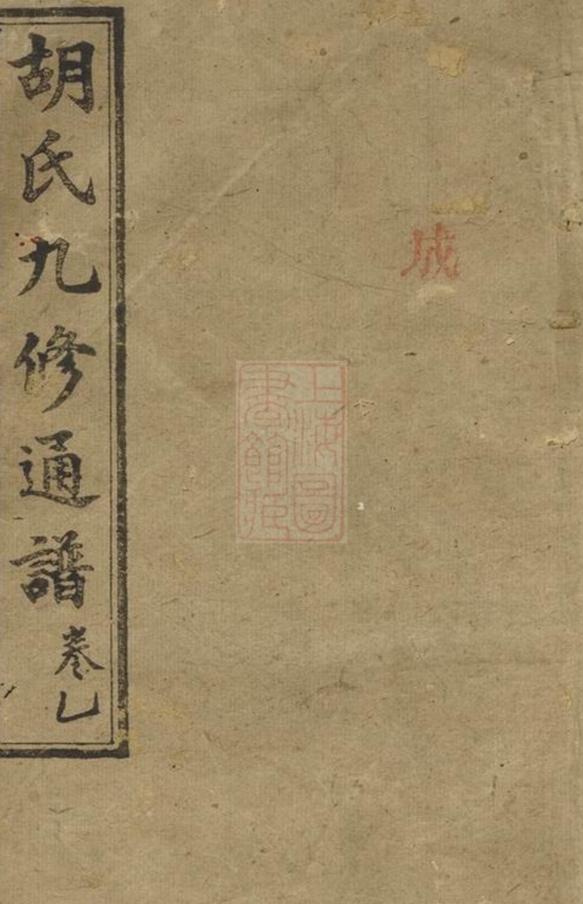 胡氏九修通譜
卷乙
城
上海圖
書館藏